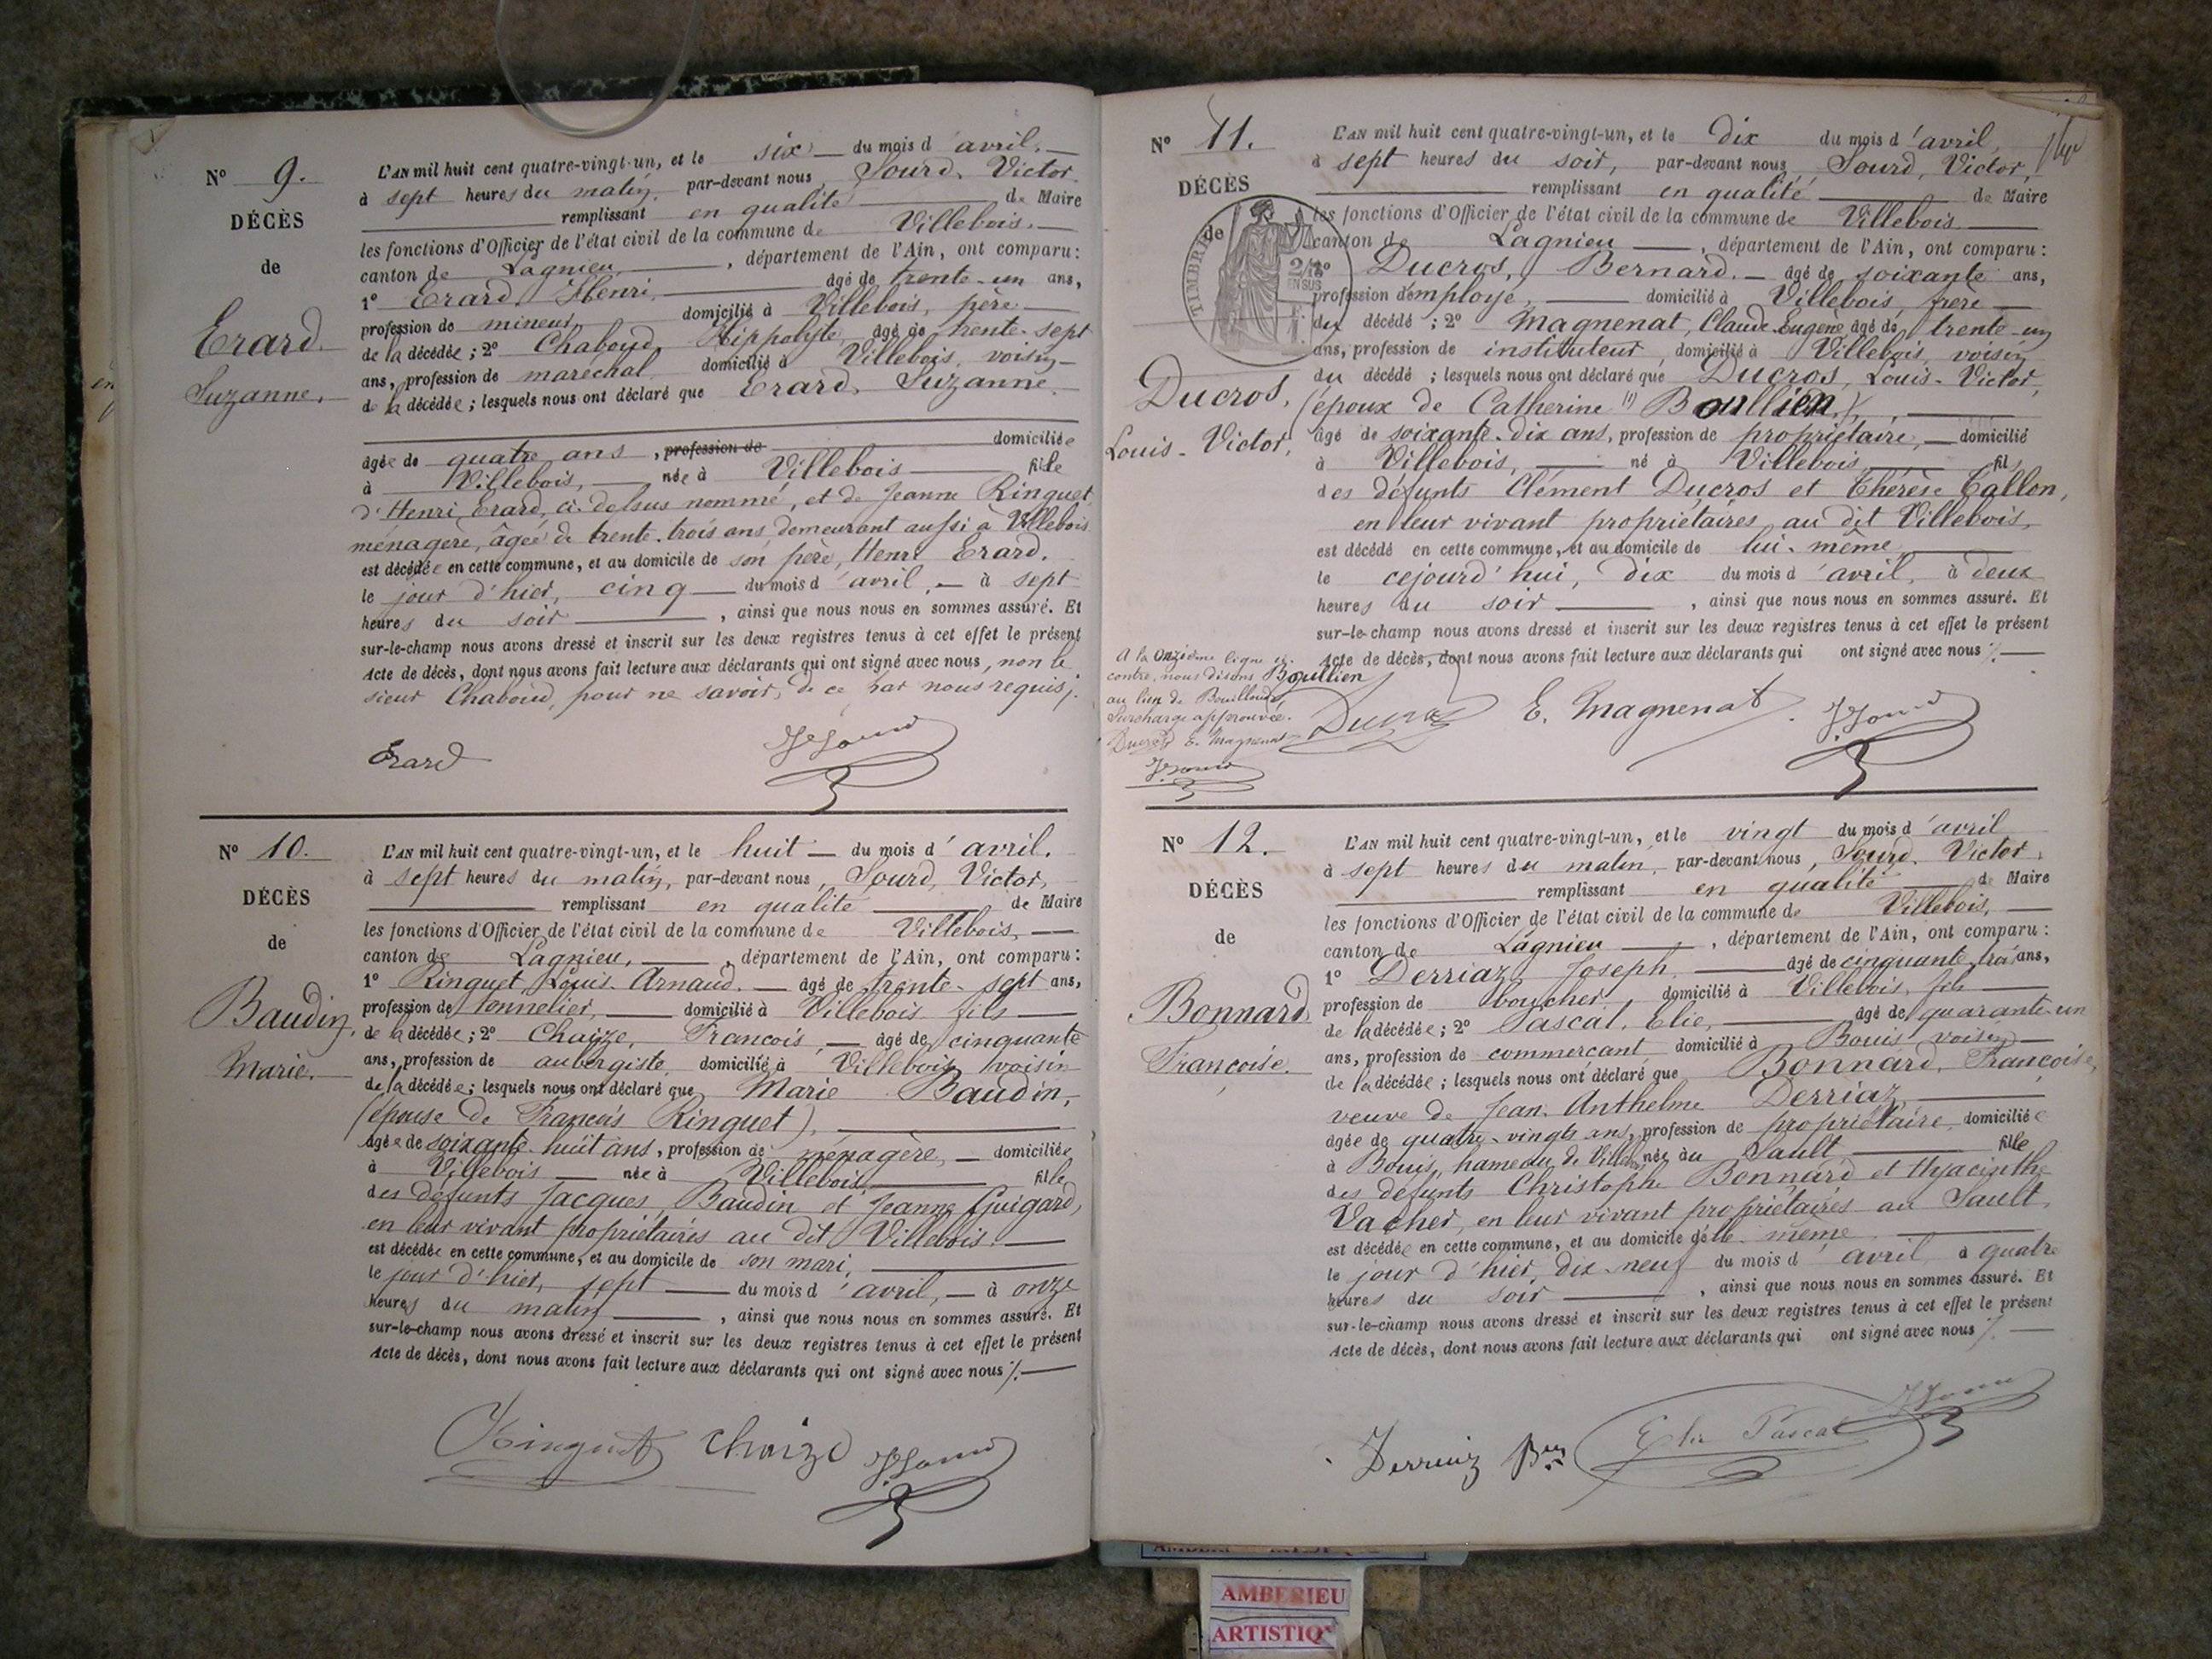 N° 9.
DÉCÈS
de
Erard
Suzanne.
L'AN mil huit cent quatre-vingt-un, et le six du mois d'avril,
à sept heures du matin, par-devant nous Sourd, Victor,
remplissant en qualité de Maire
les fonctions d'Officier de l'état civil de la commune de Villebois,
canton de Lagnieu, département de l'Ain, ont comparu:
1° Erard Henri, âgé de trente-un ans,
profession de mineur, domicilié à Villebois, père
de la décédée; 2° Chaboud, Hippolyte, âgé de trente-sept
ans, profession de maréchal domicilié à Villebois, voisin
de la décédée; lesquels nous ont déclaré que Erard, Suzanne
âgée de quatre ans, profession de domiciliée
à Villebois, née à Villebois fille
d'Henri Erard, ci-dessus nommé, et de Jeanne Ringuet,
ménagère, âgée de trente-trois ans, demeurant aussi à Villebois
est décédée en cette commune, et au domicile de son père, Henri Erard.
le jour d'hier, cinq du mois d'avril, à sept
heures du soir, ainsi que nous nous en sommes assuré. Et
sur-le-champ nous avons dressé et inscrit sur les deux registres tenus à cet effet le présent
Acte de décès, dont nous avons fait lecture aux déclarants qui ont signé avec nous, non le
sieur Chaboud, pour ne savoir, de ce par nous requis.
Erard
V Sourd
N° 10.
DÉCÈS
de
Baudin,
Marie.
L'AN mil huit cent quatre-vingt-un, et le huit du mois d'avril.
à sept heures du matin, par-devant nous, Sourd, Victor,
remplissant en qualité de Maire
les fonctions d'Officier de l'état civil de la commune de Villebois,
canton de Lagnieu, département de l'Ain, ont comparu:
1° Ringuet, Louis Arnaud. âgé de trente-sept ans,
profession de tonnelier, domicilié à Villebois fils
de la décédée; 2° Chaize, François, âgé de cinquante
ans, profession de aubergiste, domicilié à Villebois, voisin
de la décédée; lesquels nous ont déclaré que Marie Baudin,
(épouse de François Ringuet),
âgée de soixante-huit ans, profession de ménagère, domiciliée
à Villebois née à Villebois, fille
des défunts Jacques Baudin et Jeanne Guigard,
en leur vivant propriétaires au dit Villebois.
est décédée en cette commune, et au domicile de son mari,
le jour d'hier, sept du mois d'avril, à onze
heures du matin, ainsi que nous nous en sommes assuré. Et
sur-le-champ nous avons dressé et inscrit sur les deux registres tenus à cet effet le présent
Acte de décès, dont nous avons fait lecture aux déclarants qui ont signé avec nous
Ringuet Chaize V Sourd
N° 11.
DÉCÈS
de
TIMBRE
2/10
EN SUS
Ducros,
Louis-Victor,
L'AN mil huit cent quatre-vingt-un, et le dix du mois d'avril,
à sept heures du soir, par-devant nous, Sourd, Victor,
remplissant en qualité de Maire
les fonctions d'Officier de l'état civil de la commune de Villebois
canton de Lagnieu, département de l'Ain, ont comparu:
1° Ducros, Bernard. âgé de soixante ans,
profession d'employé, domicilié à Villebois, frère
du décédé; 2° Magnenat, Claude-Eugène âgé de trente-un
ans, profession de instituteur, domicilié à Villebois, voisin
du décédé; lesquels nous ont déclaré que Ducros, Louis-Victor,
(époux de Catherine (1) Boullien),
âgé de soixante-dix ans, profession de propriétaire, domicilié
à Villebois, né à Villebois fils
des défunts Clément Ducros et Thérèse Tallon,
en leur vivant propriétaires au dit Villebois,
est décédé en cette commune, et au domicile de lui-même
le cejourd'hui, dix du mois d'avril, à deux
heures du soir, ainsi que nous nous en sommes assuré. Et
sur-le-champ nous avons dressé et inscrit sur les deux registres tenus à cet effet le présent
Acte de décès, dont nous avons fait lecture aux déclarants qui ont signé avec nous
A la onzième ligne ci-
contre, nous disons Boullien
au lieu de Bouilloud,
Surcharge approuvée.
Ducros E. Magnenat
V Sourd
Ducros E. Magnenat V Sourd
N° 12.
DÉCÈS
de
Bonnard
Françoise.
L'AN mil huit cent quatre-vingt-un, et le vingt du mois d'avril
à sept heures du matin, par-devant nous, Sourd, Victor,
remplissant en qualité de Maire
les fonctions d'Officier de l'état civil de la commune de Villebois,
canton de Lagnieu, département de l'Ain, ont comparu:
1° Derriaz, Joseph, âgé de cinquante-trois ans,
profession de boucher, domicilié à Villebois, fils
de la décédée; 2° Pascal, Elie, âgé de quarante-un
ans, profession de commerçant domicilié à Bouis voisin
de la décédée; lesquels nous ont déclaré que Bonnard, Françoise,
veuve de Jean-Anthelme Derriaz,
âgée de quatre-vingts ans, profession de propriétaire, domiciliée
à Bouis, hameau de Villebois, née au Sault, fille
des défunts Christophe Bonnard et Hyacinthe
Vacher, en leur vivant propriétaires au Sault,
est décédée en cette commune, et au domicile d'elle-même
le jour d'hier, dix-neuf du mois d'avril à quatre
heures du soir, ainsi que nous nous en sommes assuré. Et
sur-le-champ nous avons dressé et inscrit sur les deux registres tenus à cet effet le présent
Acte de décès, dont nous avons fait lecture aux déclarants qui ont signé avec nous
Derriaz Elie Pascal V Sourd
AMBERIEU
ARTISTIQ